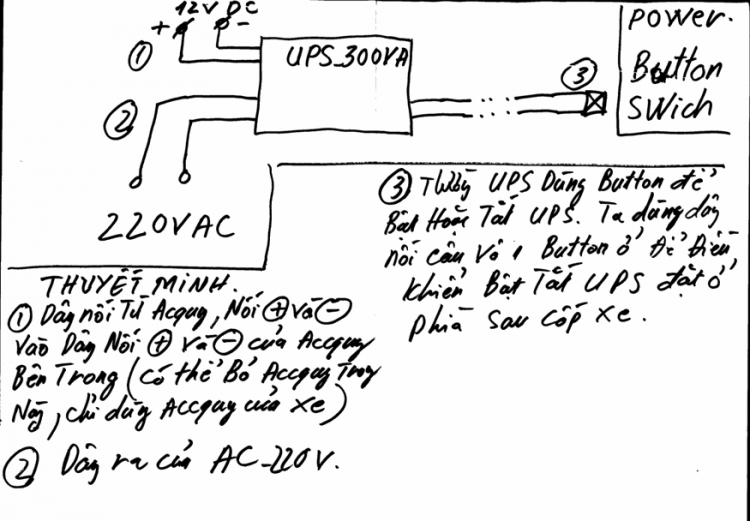 12V DC
+ -
①
UPS_300VA
②
③
220VAC
Power.
Button
SWich
THUYẾT MINH.
① Dây nối Từ Acquy, Nối ⊕ Và ⊖
Vào Dây Nối ⊕ Và ⊖ của Accquy
Bên Trong (có thể Bỏ Accquy Trong
Này, chỉ dùng Accquy của xe)
② Dây ra của AC_220V.
③ Thường UPS Dùng Button để
Bật Hoặc Tắt UPS. Ta dùng dây
nối câu Vô 1 Button ở Để Điều
khiển Bật Tắt UPS đặt ở
phía sau cốp xe.